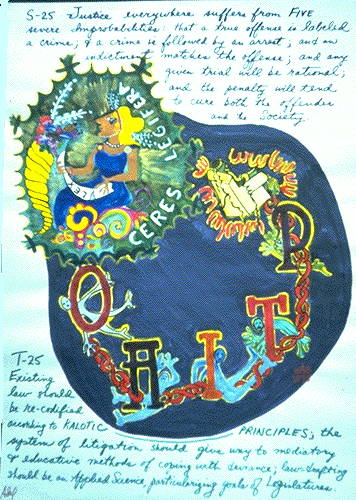 S-25 Justice everywhere suffers from FIVE
severe Improbabilities: that a true offense is labeled
a crime; & a crime is followed by an arrest; and an
indictment matches the offense; and any
given trial will be rational;
and the penalty will tend
to cure both the offender
and the Society.
CERES LEGIFERA
T-25
Existing
law should
be re-codified
according to KALOTIC PRINCIPLES; the
system of litigation should give way to mediatory
& educative methods of coping with deviance; law-drafting
should be an Applied Science, particularizing goals of Legislatures.